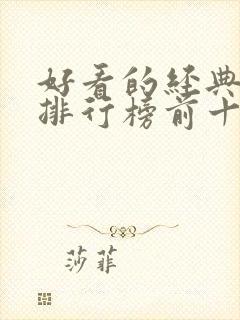 好看的经典
排行榜前十
莎菲